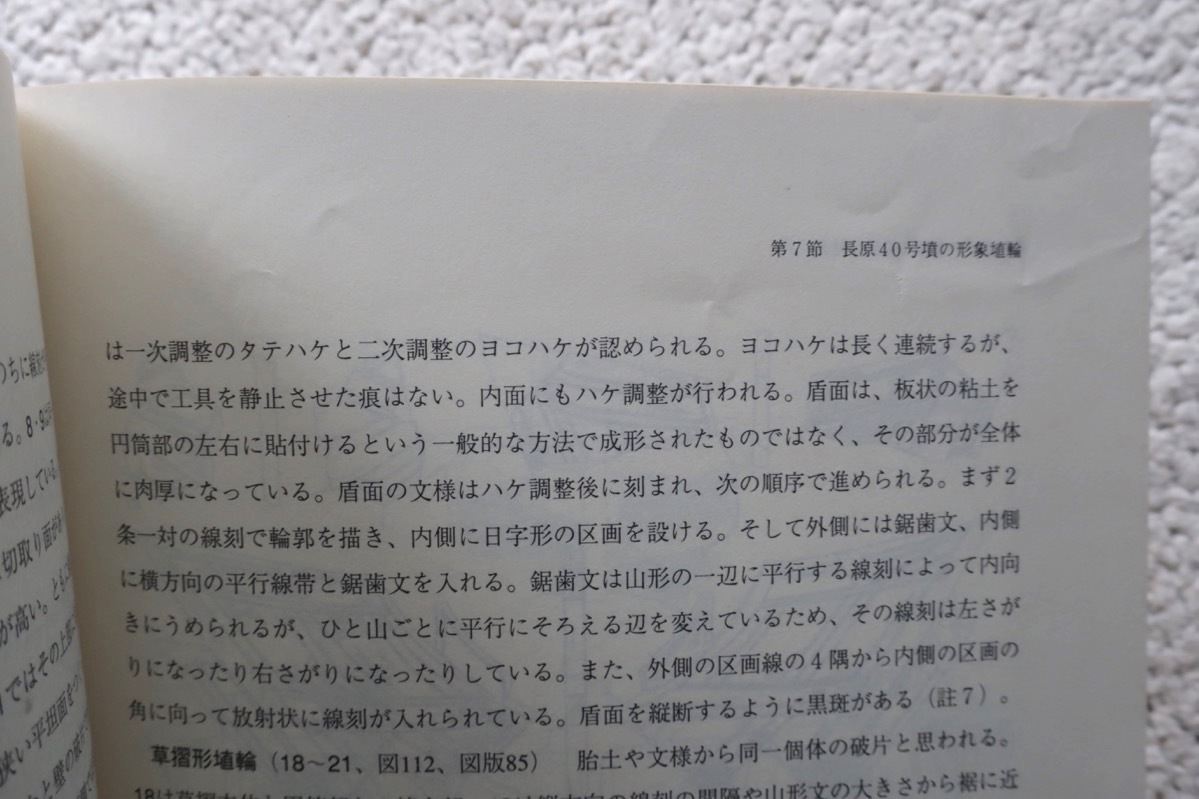 第7節　長原40号墳の形象埴輪
は一次調整のタテハケと二次調整のヨコハケが認められる。ヨコハケは長く連続するが、
途中で工具を静止させた痕はない。内面にもハケ調整が行われる。盾面は、板状の粘土を
円筒部の左右に貼付けるという一般的な方法で成形されたものではなく、その部分が全体
に肉厚になっている。盾面の文様はハケ調整後に刻まれ、次の順序で進められる。まず2
条一対の線刻で輪郭を描き、内側に日字形の区画を設ける。そして外側には鋸歯文、内側
に横方向の平行線帯と鋸歯文を入れる。鋸歯文は山形の一辺に平行する線刻によって内向
きにうめられるが、ひと山ごとに平行にそろえる辺を変えているため、その線刻は左さが
りになったり右さがりになったりしている。また、外側の区画線の4隅から内側の区画の
角に向って放射状に線刻が入れられている。盾面を縦断するように黒斑がある（註7）。
草摺形埴輪（18～21、図112、図版85）　胎土や文様から同一個体の破片と思われる。
の大きさから裾に近
のちに線刻
る。8・9
表現している。
切取り面が
が高い。とも
ではその上部
狭い平坦面をつ
と壁の破片